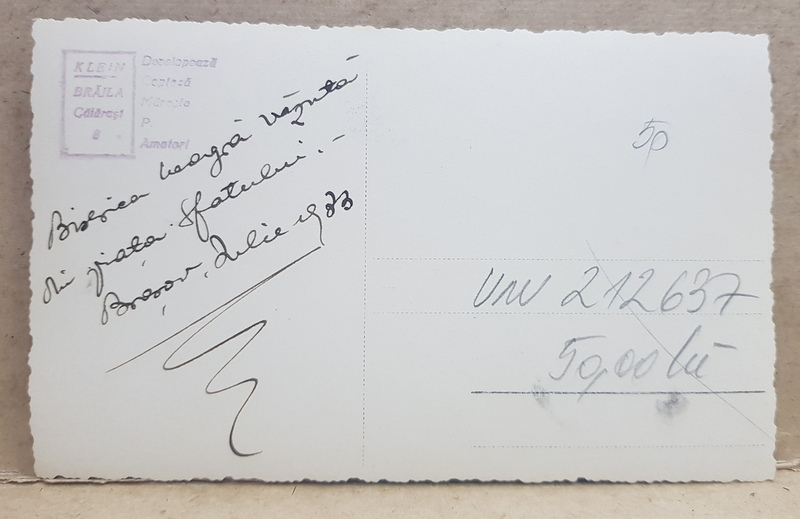 KLEIN
BRĂILA
Călărași
8
Developează
Copiază
Mărește
P
Amatori
Biserica neagră văzută
din piața Sfatului.-
Brașov, Iulie 1933
50
UNV 212637
50,00 lei